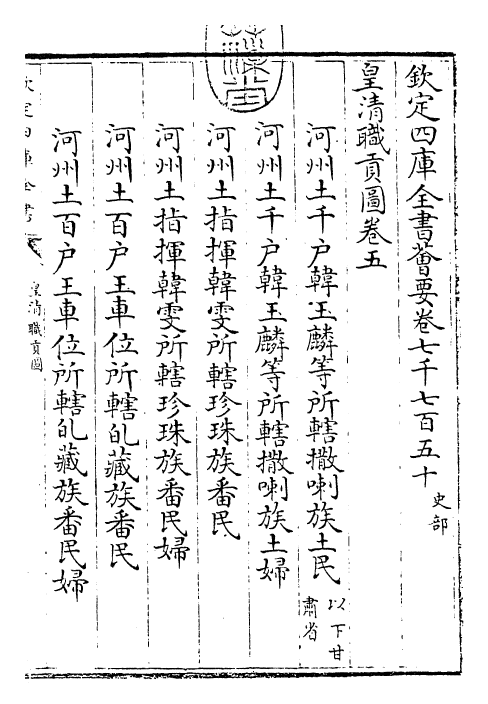 欽定四庫全書薈要卷七千七百五十 史部
皇清職貢圖卷五
河州土千户韓玉麟等所轄撒喇族土民 以下甘肅省
河州土千户韓玉麟等所轄撒喇族土婦
河州土指揮韓雯所轄珍珠族番民
河州土指揮韓雯所轄珍珠族番民婦
河州土百户王車位所轄癿藏族番民
河州土百户王車位所轄癿藏族番民婦
欽定四庫全書
皇清職貢圖